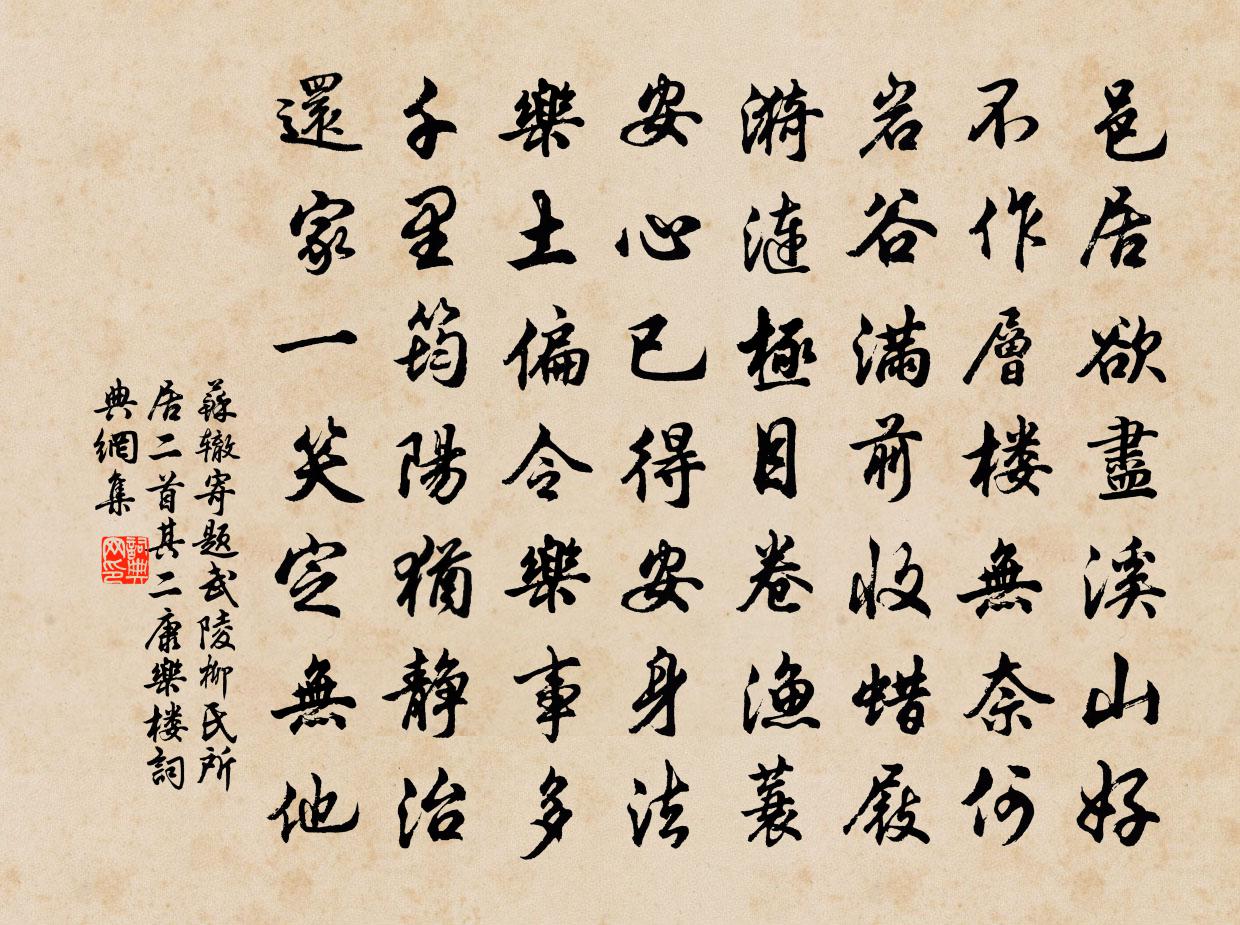 邑居欲盡溪山好
不作層楼無奈何
岩谷滿前收蜡屐
漪漣極目卷漁蓑
安心已得安身法
樂土偏令樂事多
千里筠陽猶靜治
還家一笑定無他
蘇辙寄题武陵柳氏所
居二首其二康樂楼詞
典網集
詞典
网印